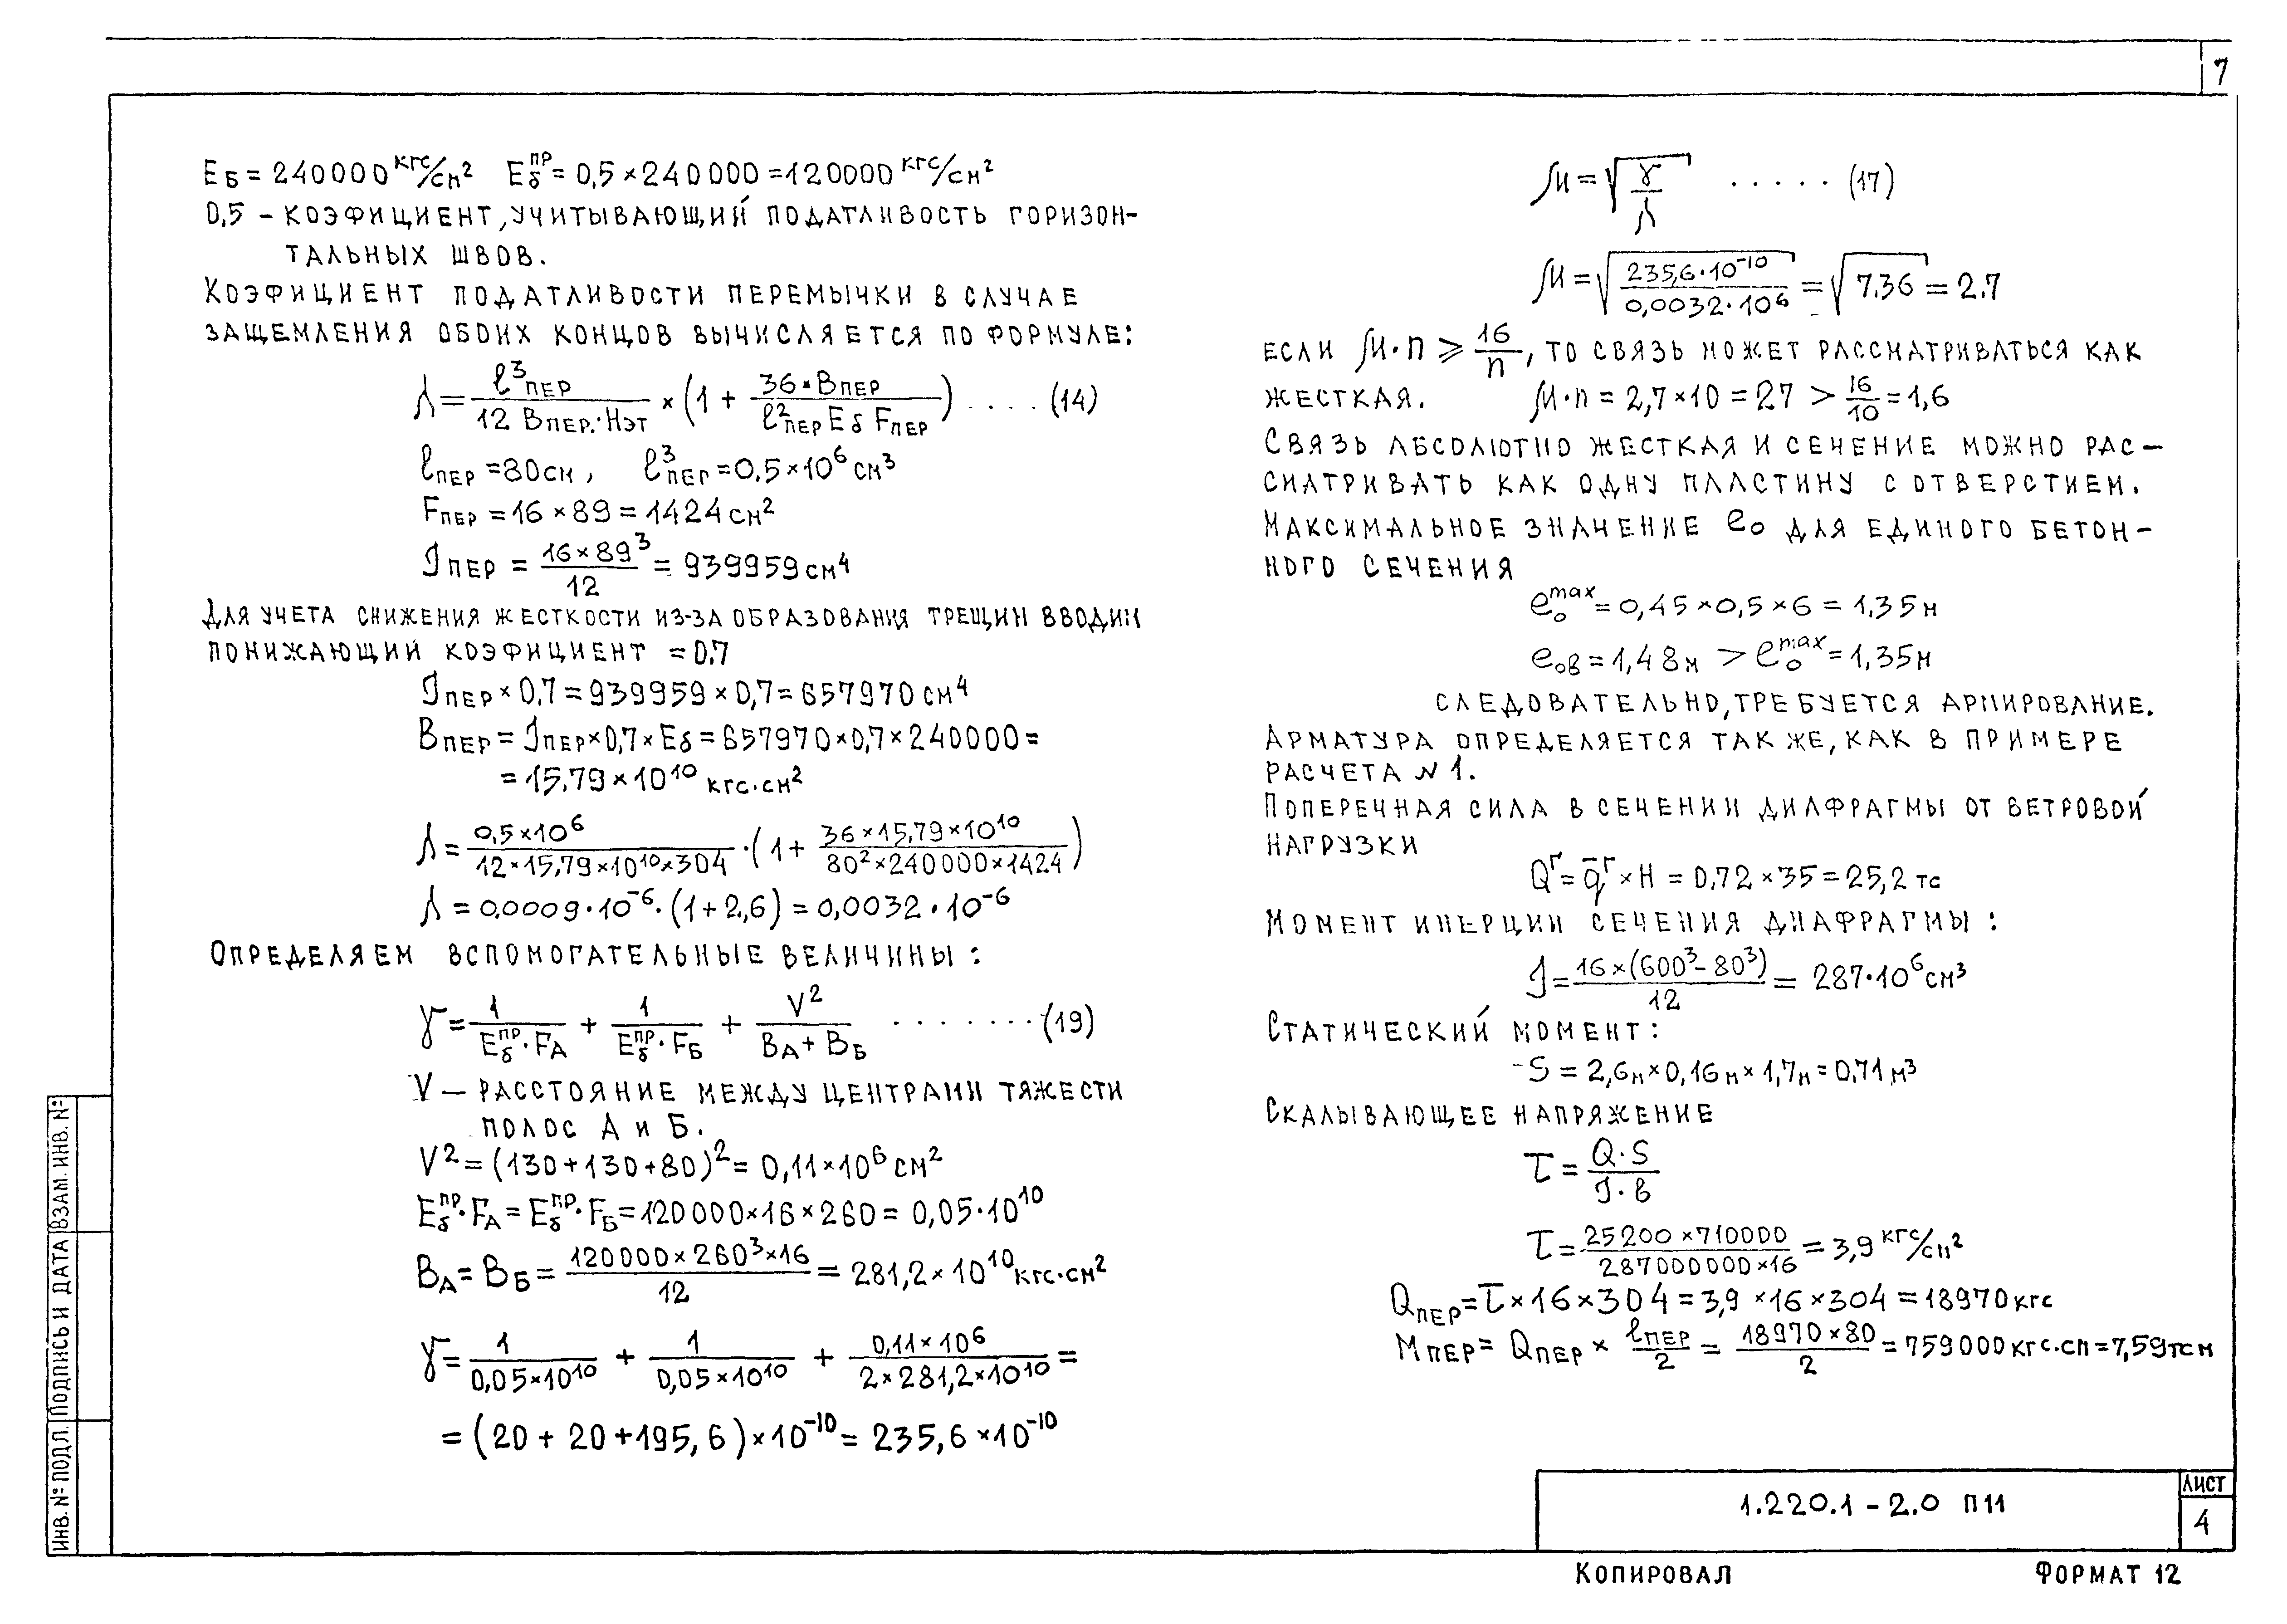 7
Eб = 240000 кгс/см² Eб^пр = 0,5 × 240000 = 120000 кгс/см²
0,5 – КОЭФИЦИЕНТ, УЧИТЫВАЮЩИЙ ПОДАТЛИВОСТЬ ГОРИЗОН-
ТАЛЬНЫХ ШВОВ.
КОЭФИЦИЕНТ ПОДАТЛИВОСТИ ПЕРЕМЫЧКИ В СЛУЧАЕ
ЗАЩЕМЛЕНИЯ ОБОИХ КОНЦОВ ВЫЧИСЛЯЕТСЯ ПО ФОРМУЛЕ:
λ = ℓ³пер / 12 Bпер.·Hэт × (1 + 36·Bпер / ℓ²пер Eб Fпер) .... (14)
ℓпер = 80 см, ℓ³пер = 0,5 × 10⁶ см³
Fпер = 16 × 89 = 1424 см²
Jпер = 16 × 89³ / 12 = 939959 см⁴
ДЛЯ УЧЕТА СНИЖЕНИЯ ЖЕСТКОСТИ ИЗ-ЗА ОБРАЗОВАНИЯ ТРЕЩИН ВВОДИМ
ПОНИЖАЮЩИЙ КОЭФИЦИЕНТ = 0,7
Jпер × 0,7 = 939959 × 0,7 = 657970 см⁴
Bпер = Jпер × 0,7 × Eб = 657970 × 0,7 × 240000 =
= 15,79 × 10¹⁰ кгс·см²
λ = 0,5 × 10⁶ / 12 × 15,79 × 10¹⁰ × 304 · (1 + 36 × 15,79 × 10¹⁰ / 80² × 240000 × 1424)
λ = 0,0009 · 10⁻⁶ · (1 + 2,6) = 0,0032 · 10⁻⁶
ОПРЕДЕЛЯЕМ ВСПОМОГАТЕЛЬНЫЕ ВЕЛИЧИНЫ:
γ = 1 / Eб^пр · FА + 1 / Eб^пр · FБ + V² / BА + BБ ........ (19)
V – РАССТОЯНИЕ МЕЖДУ ЦЕНТРАМИ ТЯЖЕСТИ
ПОЛОС А и Б.
V² = (130 + 130 + 80)² = 0,11 × 10⁶ см²
Eб^пр · FА = Eб^пр · FБ = 120000 × 16 × 260 = 0,05 · 10¹⁰
BА = BБ = 120000 × 260³ × 16 / 12 = 281,2 × 10¹⁰ кгс·см²
γ = 1 / 0,05 × 10¹⁰ + 1 / 0,05 × 10¹⁰ + 0,11 × 10⁶ / 2 × 281,2 × 10¹⁰ =
= (20 + 20 + 195,6) × 10⁻¹⁰ = 235,6 × 10⁻¹⁰
μ = √(γ / λ) ..... (17)
μ = √(235,6 · 10⁻¹⁰ / 0,0032 · 10⁶) = √7.36 = 2.7
ЕСЛИ μ·n ≥ 16 / n, ТО СВЯЗЬ МОЖЕТ РАССМАТРИВАТЬСЯ КАК
ЖЕСТКАЯ. μ·n = 2,7 × 10 = 27 > 16 / 10 = 1,6
СВЯЗЬ АБСОЛЮТНО ЖЕСТКАЯ И СЕЧЕНИЕ МОЖНО РАС-
СМАТРИВАТЬ КАК ОДНУ ПЛАСТИНУ С ОТВЕРСТИЕМ.
МАКСИМАЛЬНОЕ ЗНАЧЕНИЕ e₀ ДЛЯ ЕДИНОГО БЕТОН-
НОГО СЕЧЕНИЯ
e₀^max = 0,45 × 0,5 × 6 = 1,35 м
e₀в = 1,48 м > e₀^max = 1,35 м
СЛЕДОВАТЕЛЬНО, ТРЕБУЕТСЯ АРМИРОВАНИЕ.
АРМАТУРА ОПРЕДЕЛЯЕТСЯ ТАК ЖЕ, КАК В ПРИМЕРЕ
РАСЧЕТА N 1.
ПОПЕРЕЧНАЯ СИЛА В СЕЧЕНИИ ДИАФРАГМЫ ОТ ВЕТРОВОЙ
НАГРУЗКИ
Q^г = q̄^г × H = 0,72 × 35 = 25,2 тс
МОМЕНТ ИНЕРЦИИ СЕЧЕНИЯ ДИАФРАГМЫ:
J = 16 × (600³ – 80³) / 12 = 287 · 10⁶ см³
СТАТИЧЕСКИЙ МОМЕНТ:
S = 2,6м × 0,16м × 1,7м = 0,71 м³
СКАЛЫВАЮЩЕЕ НАПРЯЖЕНИЕ
τ = Q · S / J · в
τ = 25200 × 710000 / 287000000 × 16 = 3,9 кгс/см²
Qпер = τ × 16 × 304 = 3,9 × 16 × 304 = 18970 кгс
Mпер = Qпер × ℓпер / 2 = 18970 × 80 / 2 = 759000 кгс.см = 7,59 тсм
ИНВ. № ПОДЛ. ПОДПИСЬ И ДАТА ВЗАМ. ИНВ. №
1.220.1 – 2.0 П11
ЛИСТ
4
КОПИРОВАЛ ФОРМАТ 12